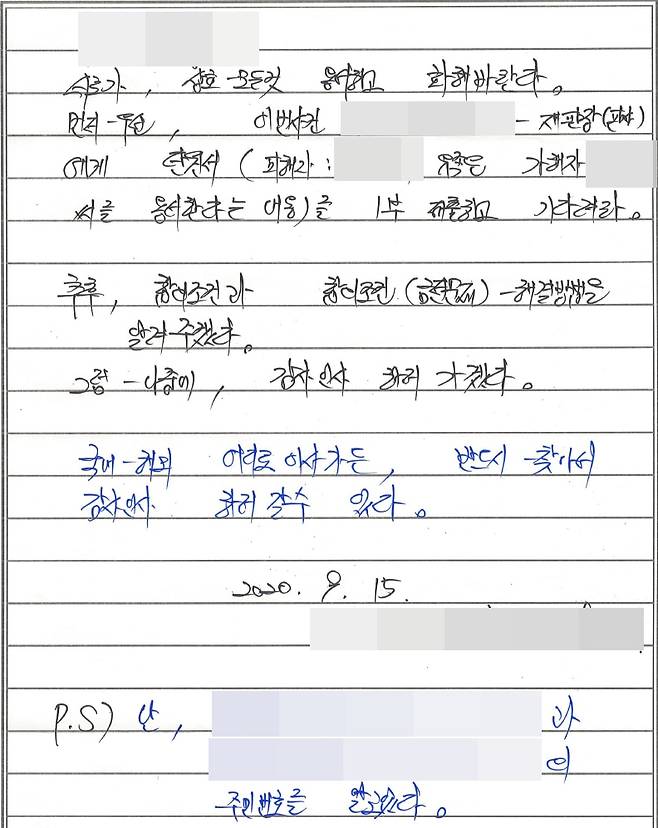 서로가, 상호-모든것 용서하고 화해바란다.
먼저-우선, 이번사건 - 재판장(판사)
에게 탄원서(피해자: 유족은 가해자
씨를 용서한다는 내용)를 1부 제출하고 기다려라.
추후, 합의조건과 합의조건(금전문제)-해결방법을
알려주겠다.
그럼-나중에, 감사인사 하러 가겠다.
국내-해외 어디로 이사가든, 반드시-찾아서
감사인사 하러 갈수 있다.
2020. 9. 15.
P.S) 난, 과
의
주민번호를 알고있다.